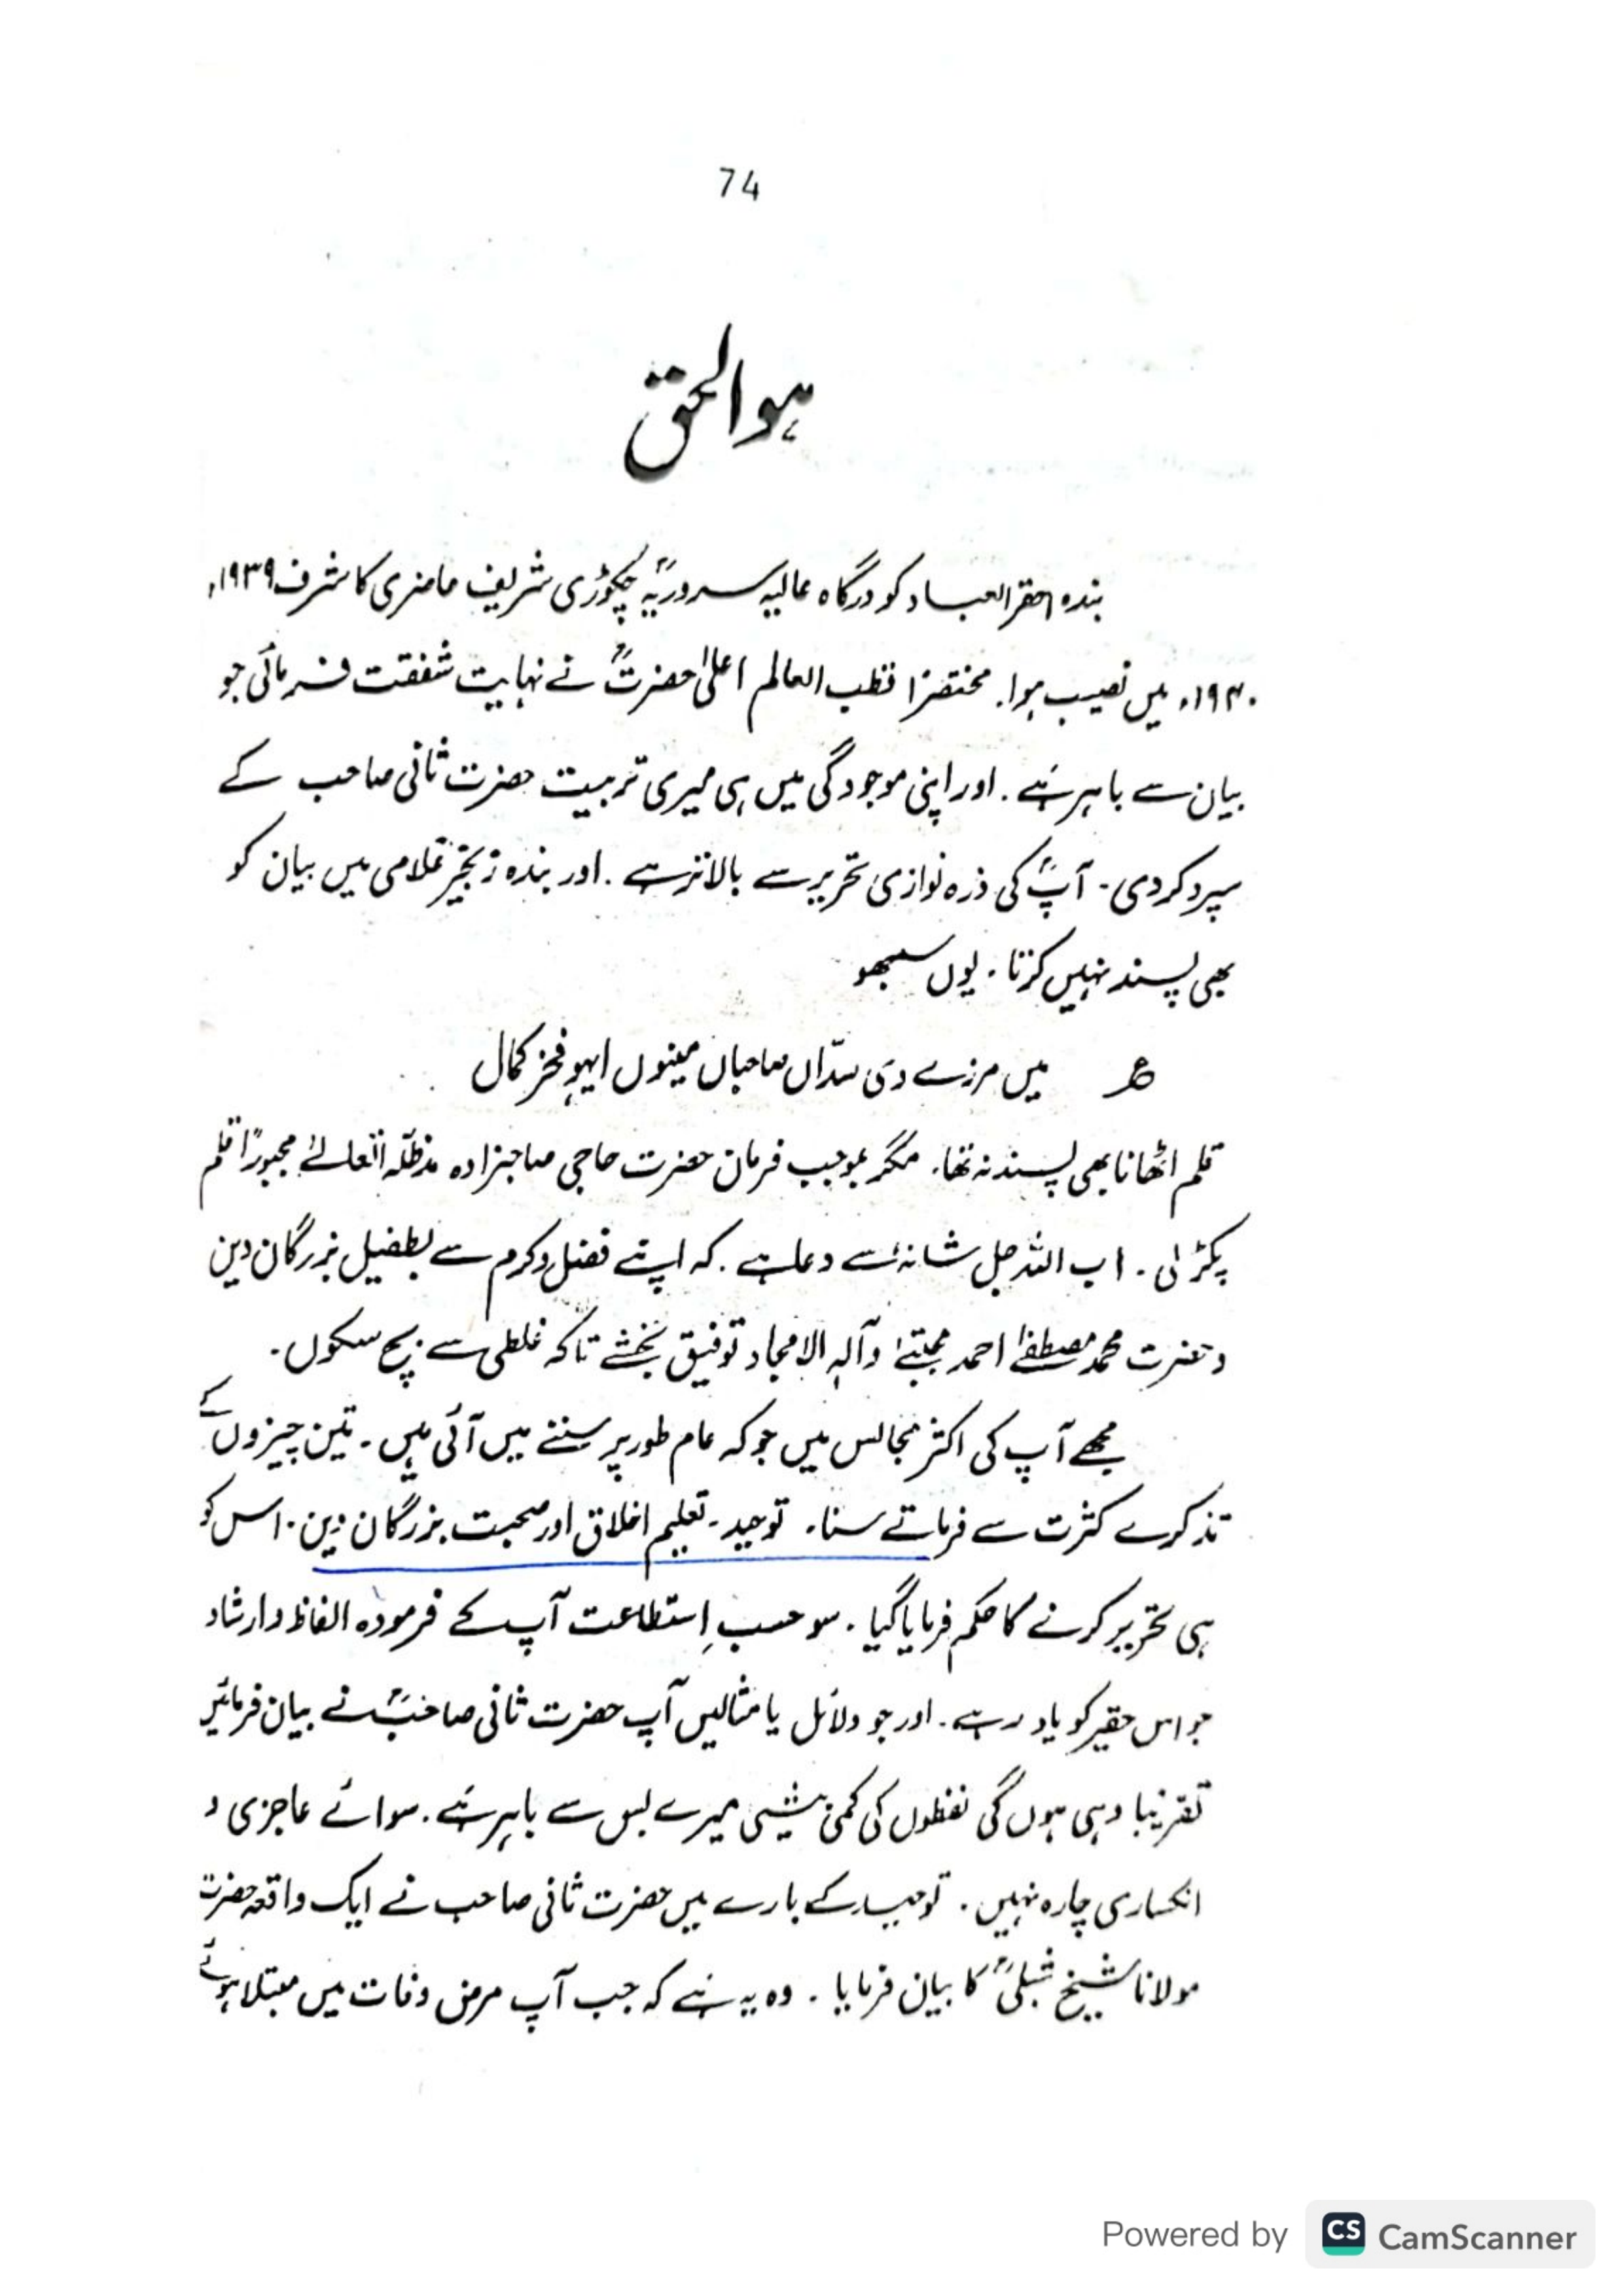 74
ہوالحق
بندہ احقر العباد کو درگاہ عالیہ سروریہؒ چکوڑی شریف حاضری کا شرف ۱۹۳۹ء،
۱۹۴۰ء میں نصیب ہوا۔ مختصرًا قطب العالم اعلیٰ حضرتؒ نے نہایت شفقت فرمائی جو
بیان سے باہر ہے۔ اور اپنی موجودگی میں ہی میری تربیت حضرت ثانی صاحب کے
سپرد کر دی۔ آپؒ کی ذرہ نوازی تحریر سے بالاتر ہے۔ اور بندہ زنجیر غلامی میں بیان کو
بھی پسند نہیں کرتا۔ یوں سمجھو
ع میں مرزے دی سدّاں صاحباں مینوں ایہو فخر کمال
قلم اٹھانا بھی پسند نہ تھا۔ مگر بموجب فرمان حضرت حاجی صاحبزادہ مدظلہ تعالےٰ مجبورًا قلم
پکڑ لی۔ اب اللہ جل شانہٗ سے دعا ہے۔ کہ اپنے فضل و کرم سے بطفیل بزرگان دین
و حضرت محمد مصطفےٰ احمد مجتبےٰ و آلہٖ الامجاد توفیق بخشے تاکہ غلطی سے بچ سکوں۔
مجھے آپ کی اکثر مجالس میں جو کہ عام طور پر سننے میں آئی ہیں۔ تین چیزوں کے
تذکرے کثرت سے فرماتے سنا۔ توحید۔ تعلیم اخلاق اور صحبت بزرگان دین۔ اس کو
ہی تحریر کرنے کا حکم فرمایا گیا۔ سو حسبِ اِستطاعت آپ کے فرمودہ الفاظ و ارشاد
جو اس حقیر کو یاد رہے۔ اور جو دلائل یا مثالیں آپ حضرت ثانی صاحبؒ نے بیان فرمائیں
تقریبا وہی ہوں گی لفظوں کی کمی بیشی میرے بس سے باہر ہے۔ سوائے عاجزی و
انکساری چارہ نہیں۔ توحید کے بارے میں حضرت ثانی صاحب نے ایک واقعہ حضرت
مولانا شیخ شبلیؒ کا بیان فرمایا۔ وہ یہ ہے کہ جب آپ مرض وفات میں مبتلا ہوئے
Powered by CS CamScanner